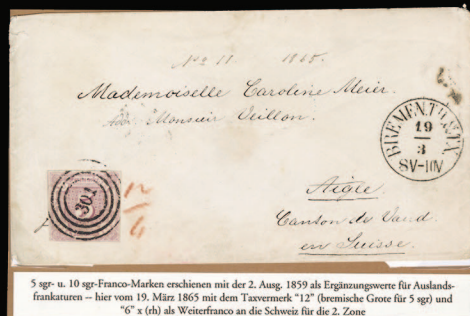 No 18. 1865.
Mademoiselle Caroline Meier.
Monsieur Veillon.
BREMEN.TH.&TX
19
3
8V-10V
301
12
6
Aigle.
Canton de Vaud.
en Suisse.
5 sgr- u. 10 sgr-Franco-Marken erschienen mit der 2. Ausg. 1859 als Ergänzungswerte für Auslands-
frankaturen -- hier vom 19. März 1865 mit dem Taxvermerk “12” (bremische Grote für 5 sgr) und
“6” x (rh) als Weiterfranco an die Schweiz für die 2. Zone